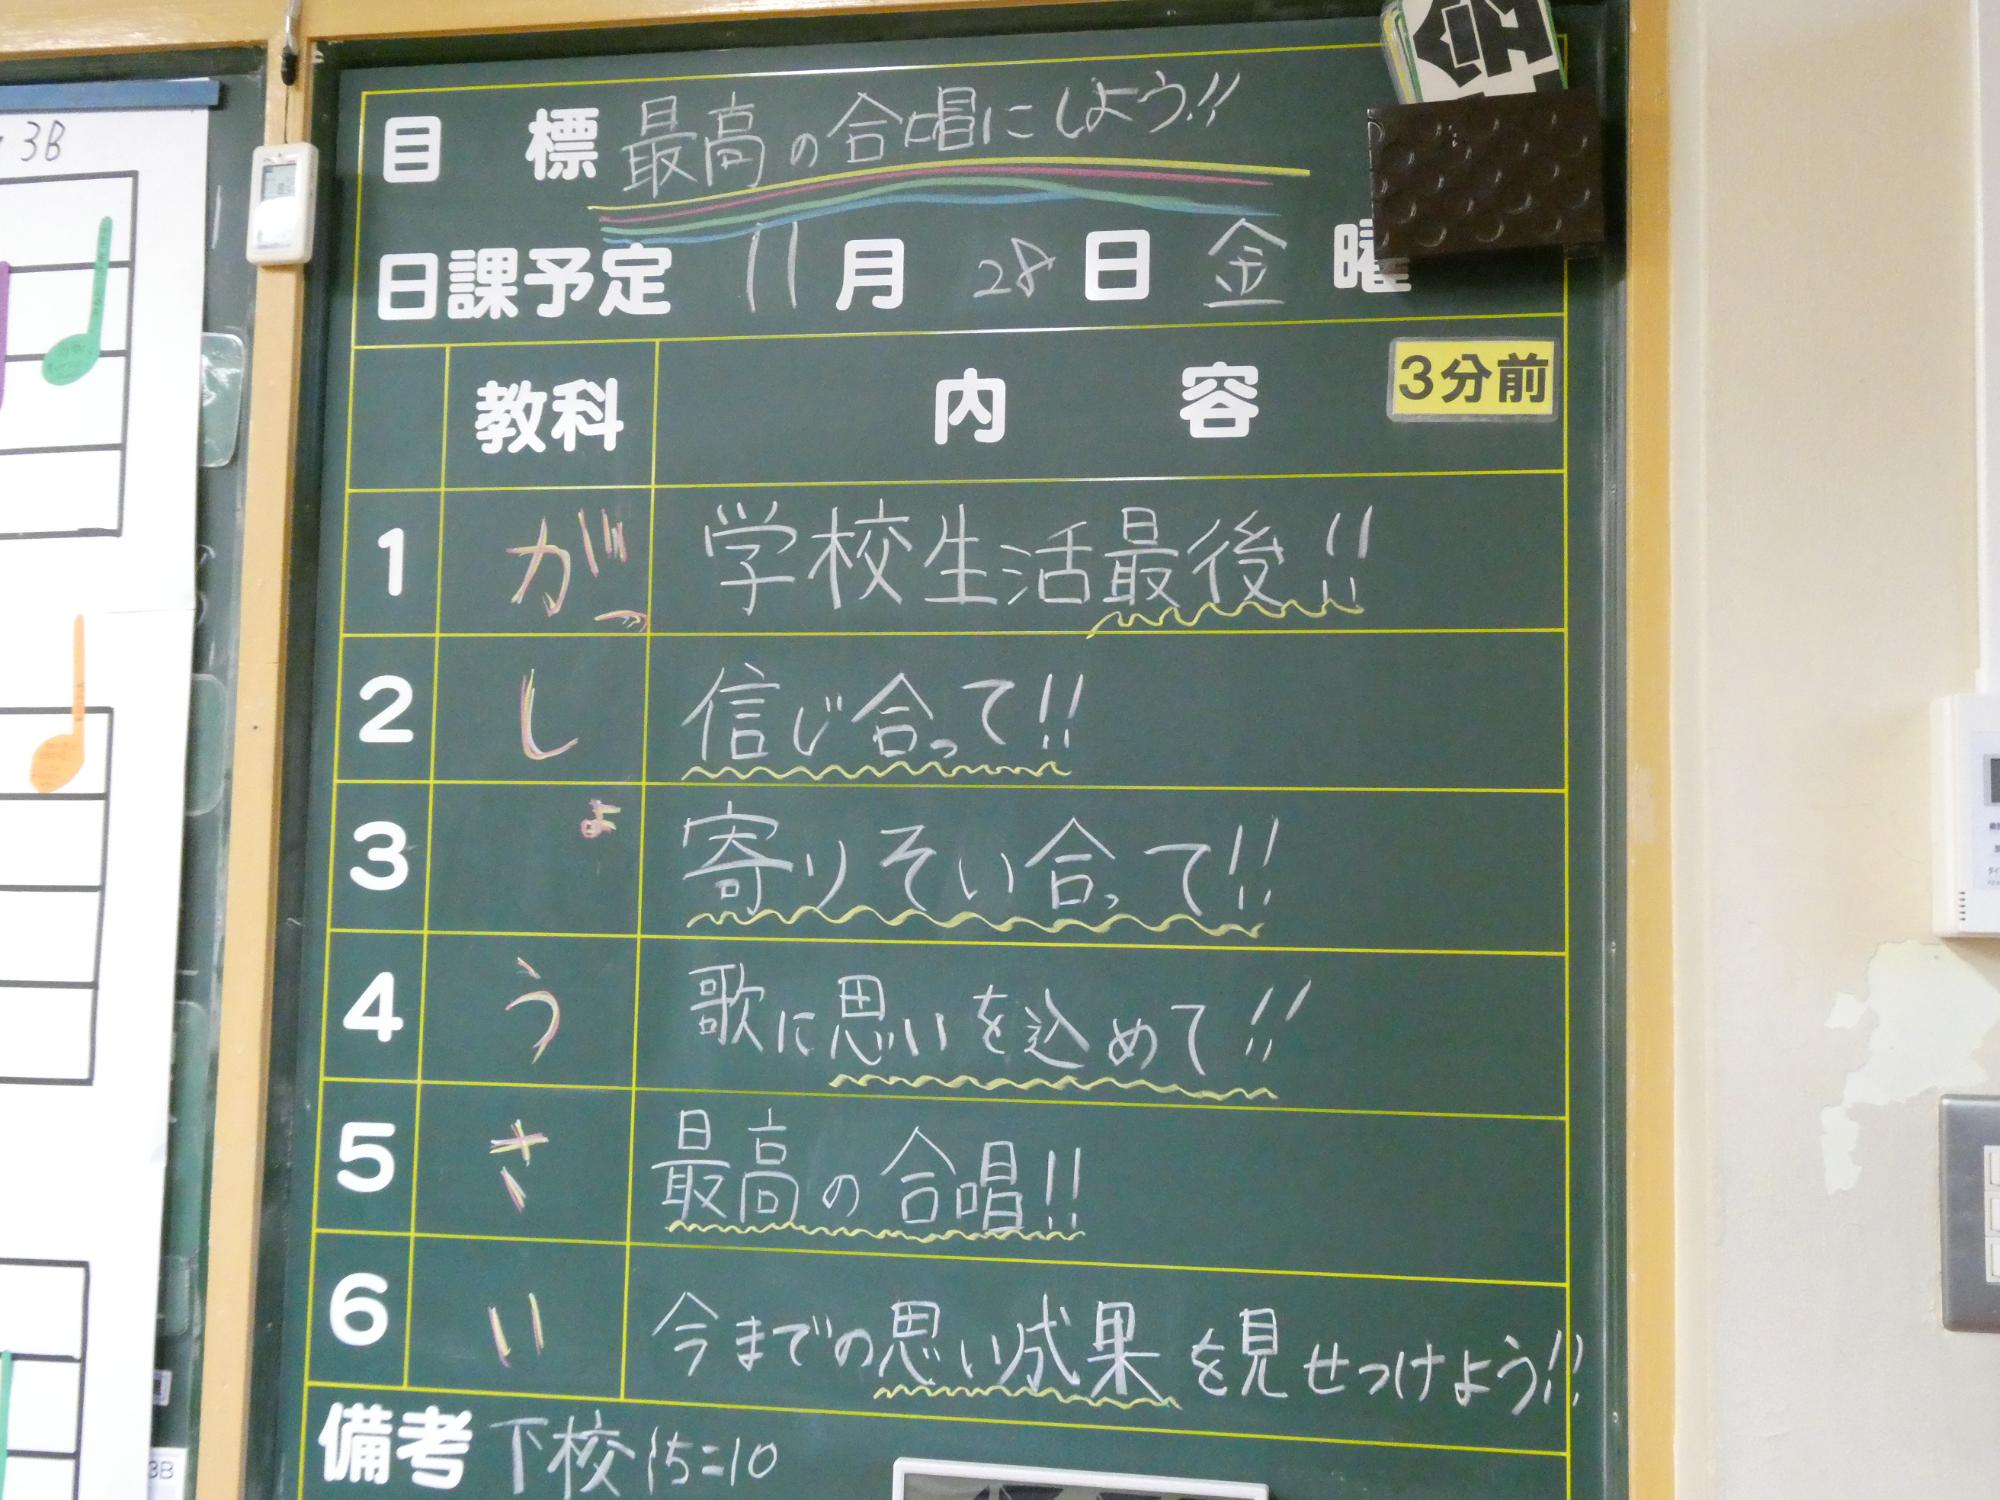 3B
目標 最高の合唱にしよう!!
日課予定 11月28日金曜
教科 内容 3分前
1 がっ 学校生活最後!!
2 し 信じ合って!!
3 ょ 寄りそい合って!!
4 う 歌に思いを込めて!!
5 さ 最高の合唱!!
6 い 今までの思い成果を見せつけよう!!
備考 下校 15:10
3B